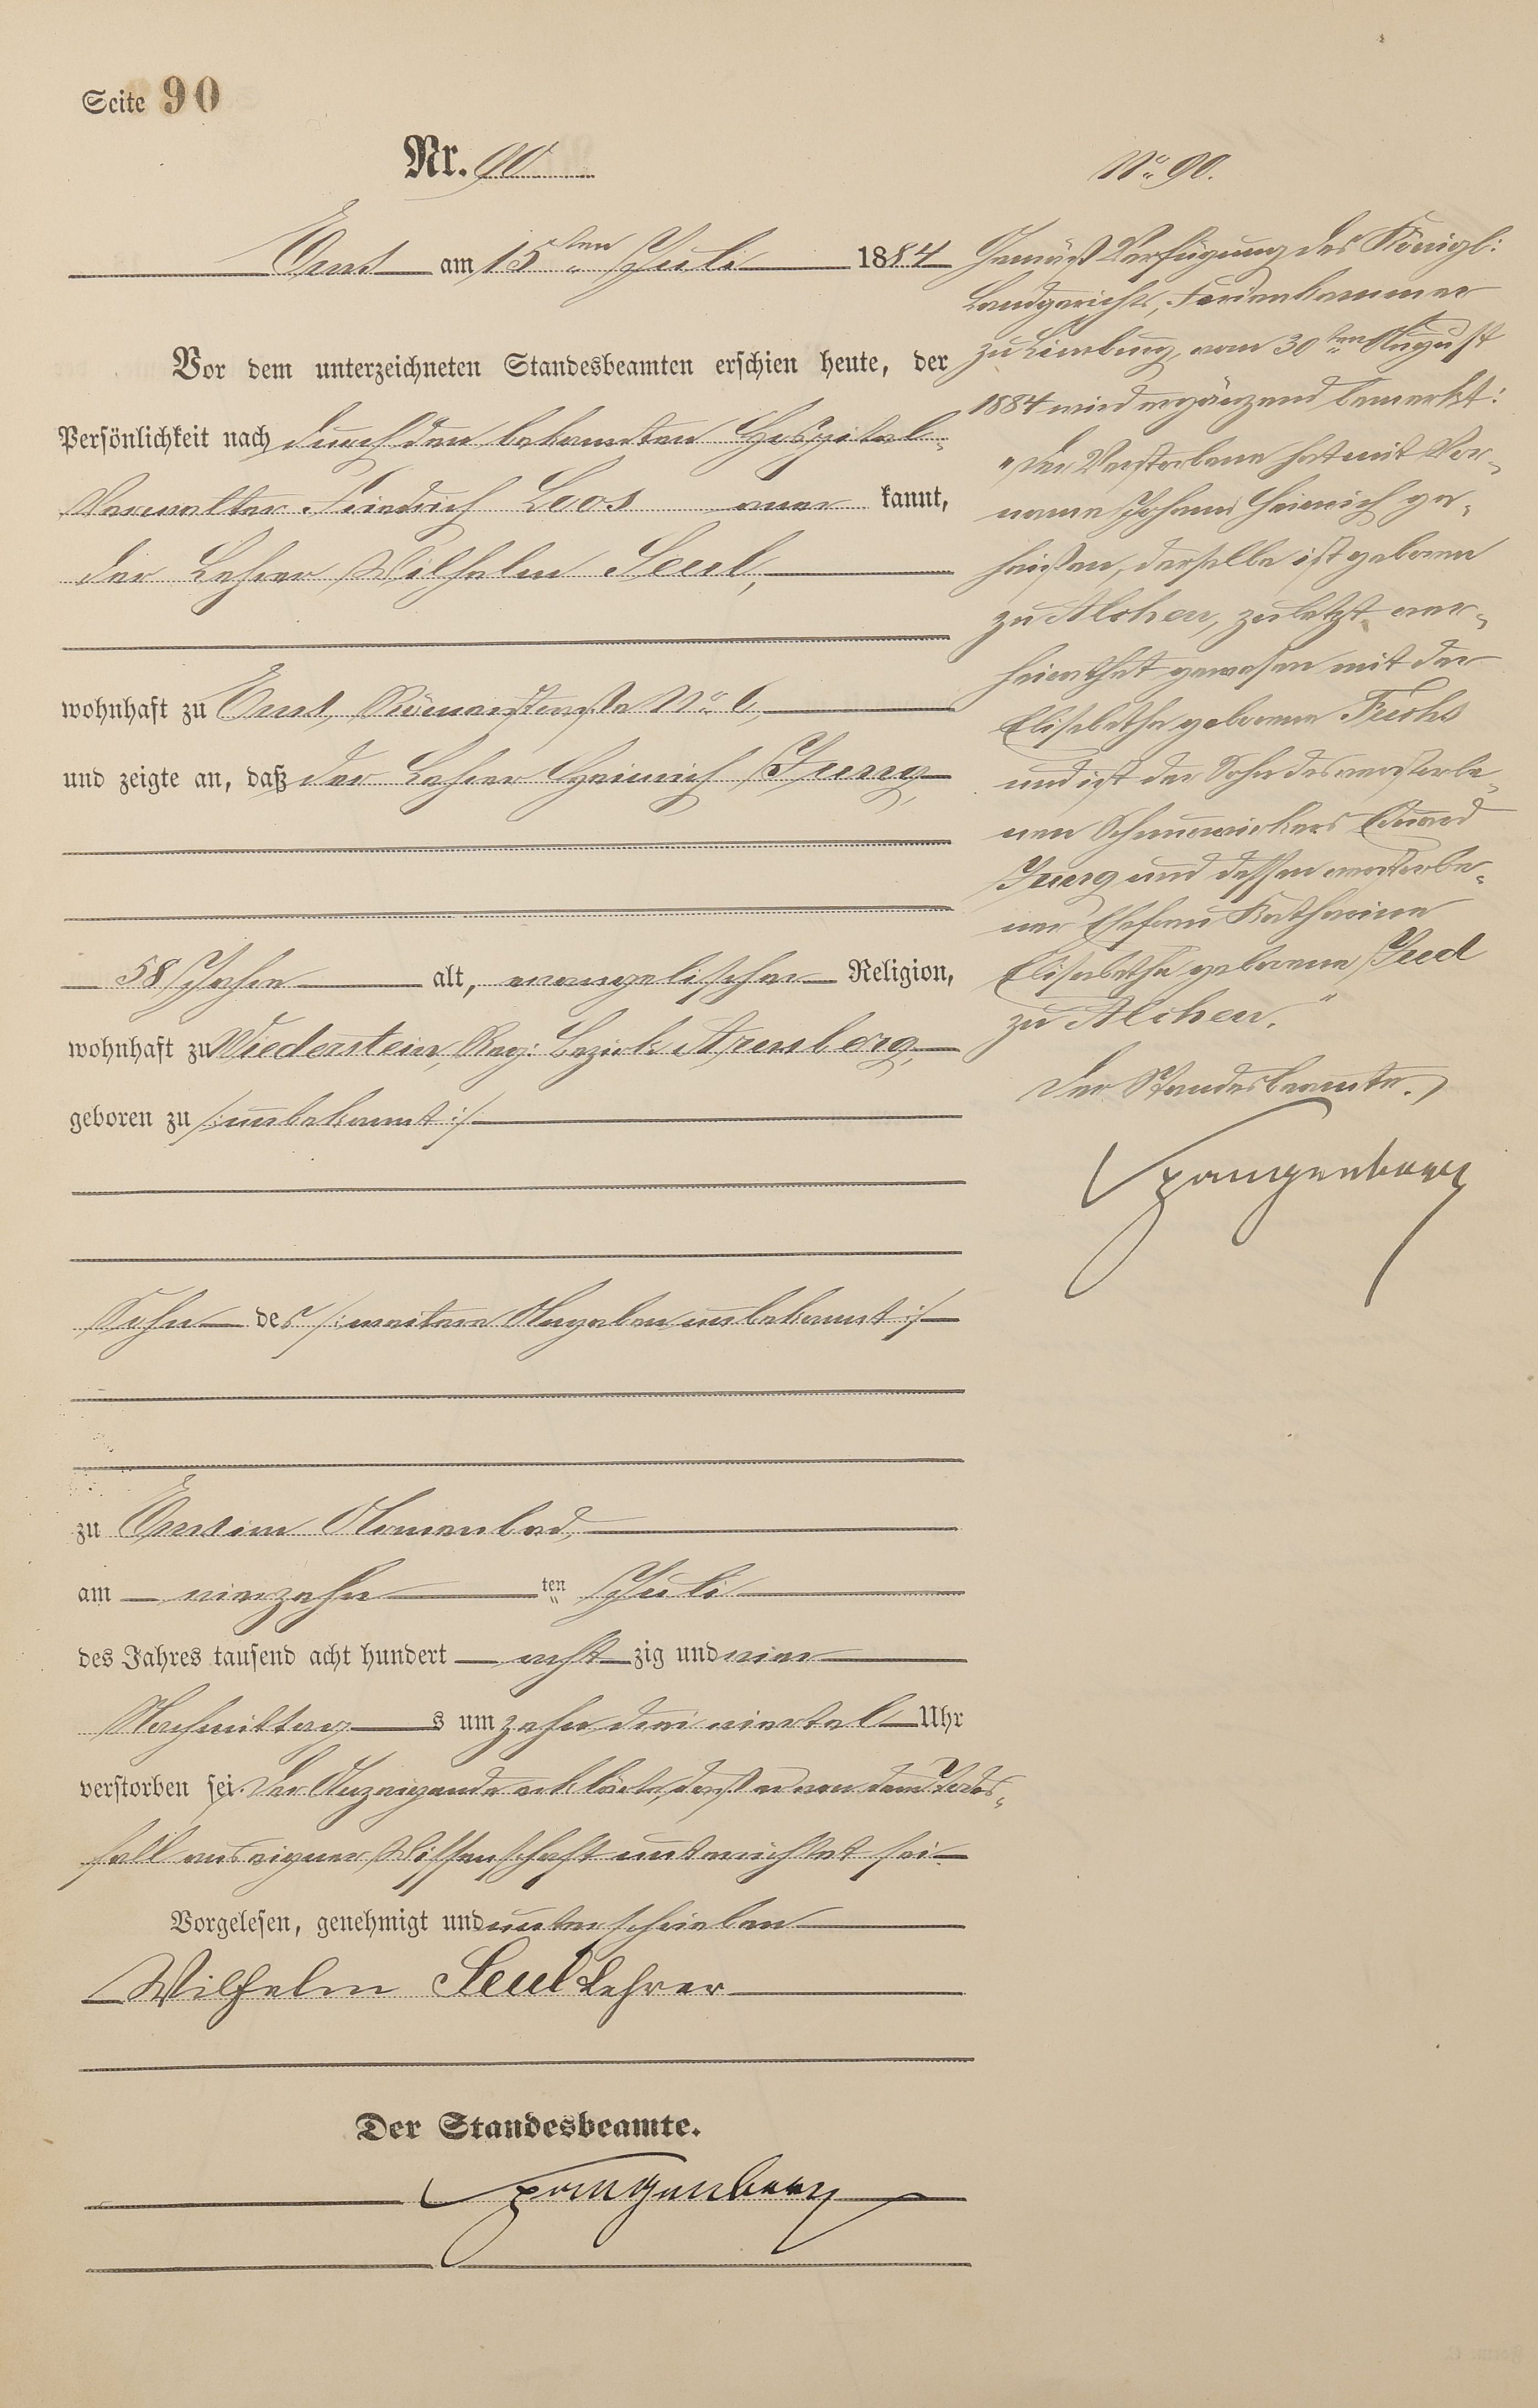 Seite 90
Nr. 90
Ems am 15ten Juli 1884
Vor dem unterzeichneten Standesbeamten erschien heute, der
Persönlichkeit nach durch den bekannten Hospital-
Verwalter Friedrich Loos aner kannt,
der Lehrer Wilhelm Seul,
wohnhaft zu Ems, Römerstraße No 6,
und zeigte an, daß der Lehrer Heinrich Jung,
58 Jahre alt, evangelischer Religion,
wohnhaft zu Wiederstein, Reg: Bezirk Arnsberg,
geboren zu /:unbekannt:/
Sohn des /:weitere Angaben unbekannt:/
zu Ems im Armenbad,
am vierzehn ten Juli
des Jahres tausend acht hundert acht zig und vier
Nachmittag s um zehn drei viertel Uhr
verstorben sei. Der Anzeigende erklärte, daß er von dem Todes-
fall aus eigner Wissenschaft unterrichtet sei
Vorgelesen, genehmigt und unterschrieben
Wilhelm Seul Lehrer
Der Standesbeamte.
Spangenberg
No 90.
Gemäß Verfügung des Königl:
Landgerichts, Ferienkammer
zu Limburg, vom 30ten August
1884 wird ergänzend bemerkt:
"Der Verstorbene hat mit Vor-
name Johann Heinrich ge-
heißen, derselbe ist geboren
zu Alchen, zuletzt ver-
heirathet gewesen mit der
Elisabetha geborene Fuchs
und ist der Sohn des verstorbe-
nen Eduard
Jung und dessen verstorbe-
ner Ehefrau Katharina
Elisabetha geborene Jud
zu Alchen."
Der Standesbeamte.
Spangenberg